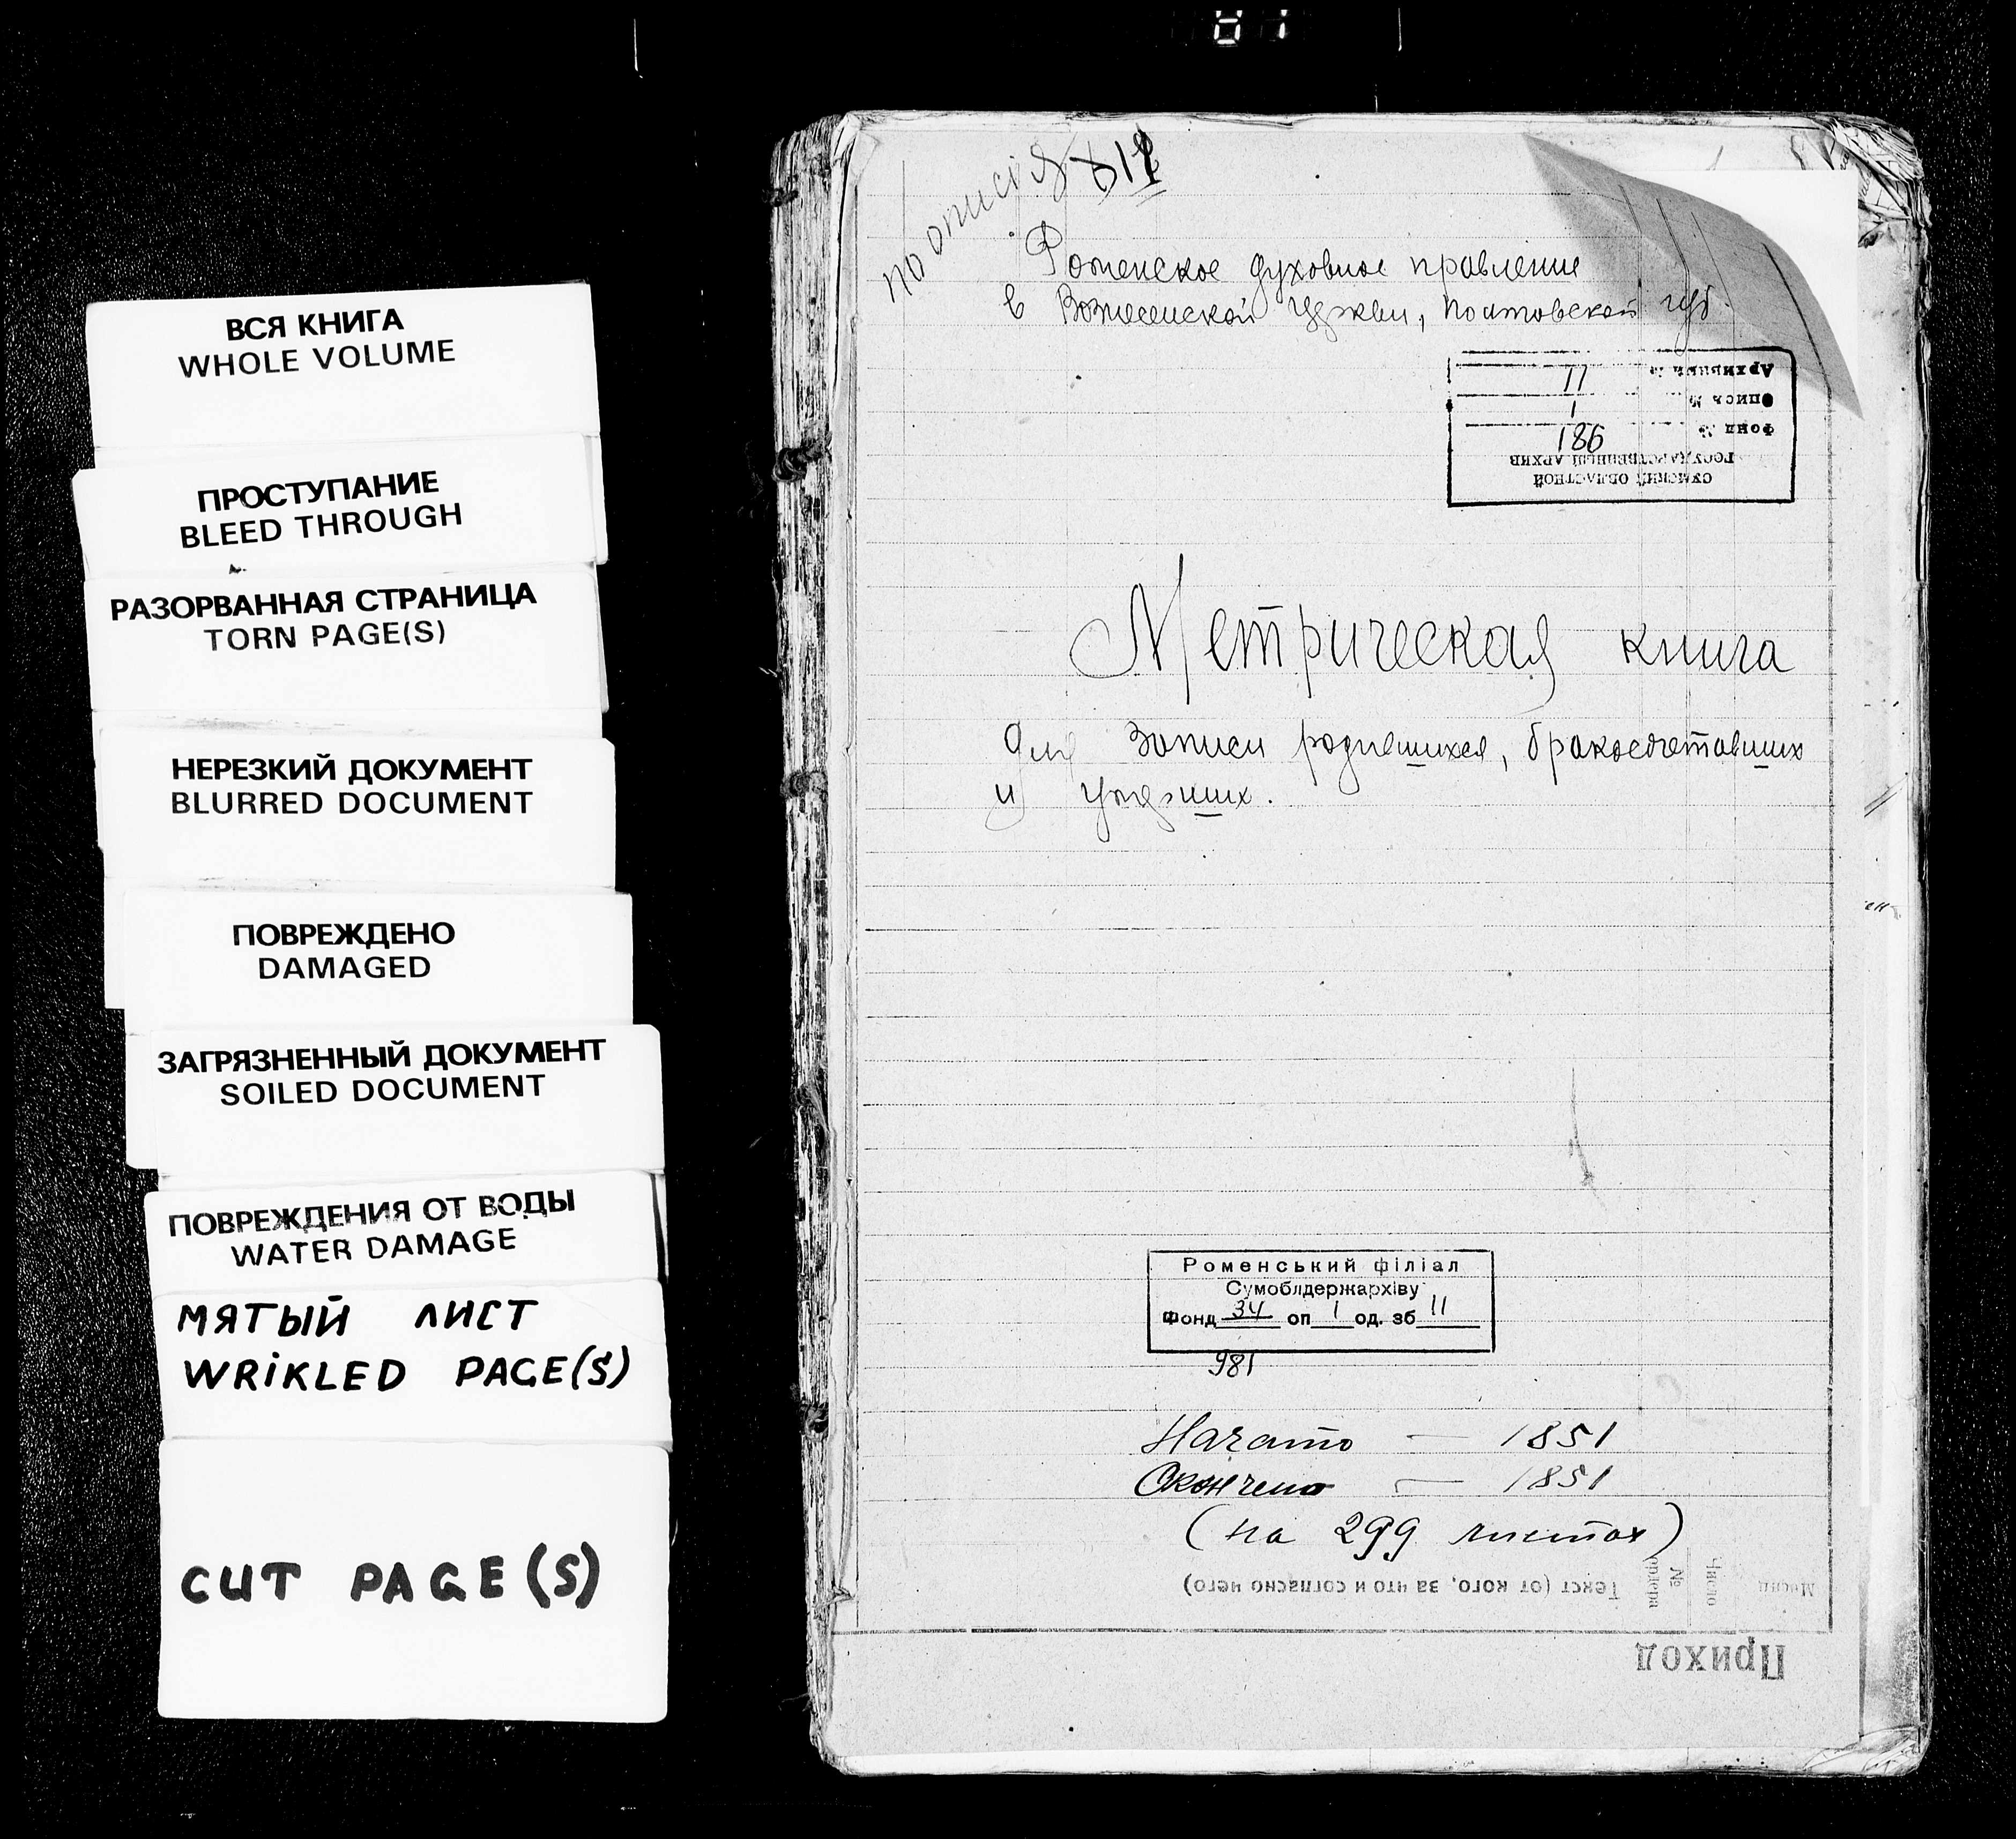 ВСЯ КНИГА
WHOLE VOLUME
ПРОСТУПАНИЕ
BLEED THROUGH
РАЗОРВАННАЯ СТРАНИЦА
TORN PAGE(S)
НЕРЕЗКИЙ ДОКУМЕНТ
BLURRED DOCUMENT
ПОВРЕЖДЕНО
DAMAGED
ЗАГРЯЗНЕННЫЙ ДОКУМЕНТ
SOILED DOCUMENT
ПОВРЕЖДЕНИЯ ОТ ВОДЫ
WATER DAMAGE
МЯТЫЙ ЛИСТ
WRIKLED PAGE(S)
CUT PAGE(S)
по описи
Роменское духовное правление
в Вознесенской церкви, Полтавской губ.
СУМСКИЙ ОБЛАСТНОЙ
ГОСУДАРСТВЕННЫЙ АРХИВ
Фонд № 186
Опись № 1
Архивный № 11
Метрическая книга
для записи родившихся, бракосочетавших
и умерших.
Роменський філіал
Сумоблдержархіву
Фонд 34 оп 1 од. зб 11
981
Начато — 1851
Окончено — 1851
(на 299 листах)
Месяц Число № ордера Текст (от кого, за что и согласно чего)
Приход